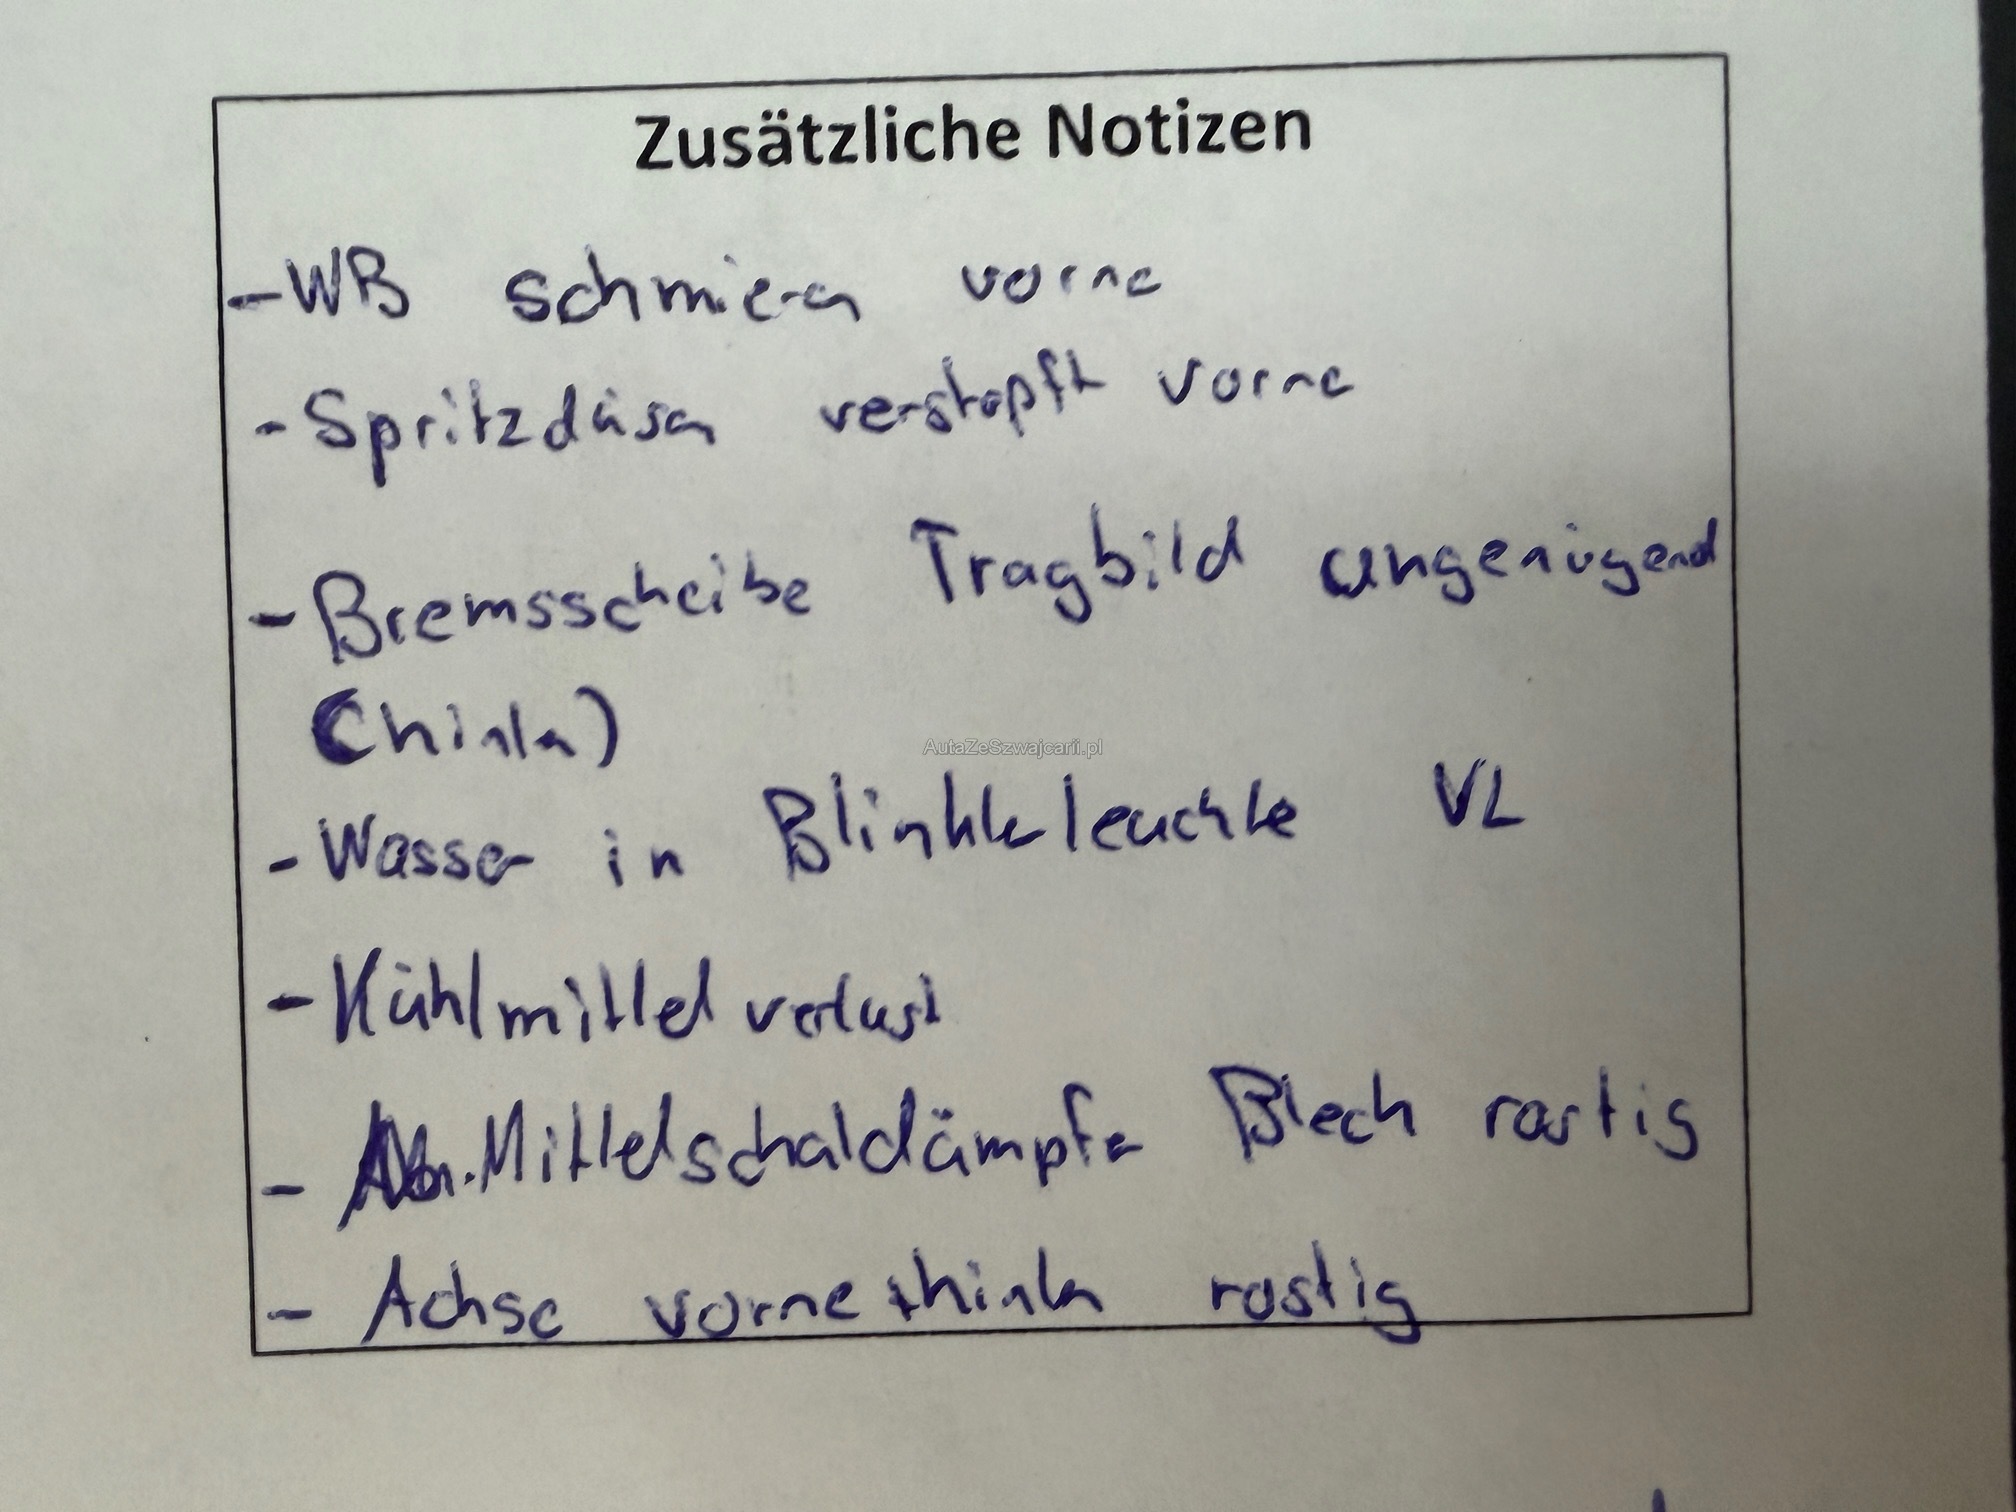 Zusätzliche Notizen
- WB schmieren vorne
- Spritzdüsen verstopft vorne
- Bremsscheibe Tragbild ungenügend
(hinten)
AutaZeSzwajcarii.pl
- Wasser in Blinkerleuchte VL
- Kühlmittel verlust
- Mittelschaldämpfer Blech rostig
- Achse vorne + hinten rostig